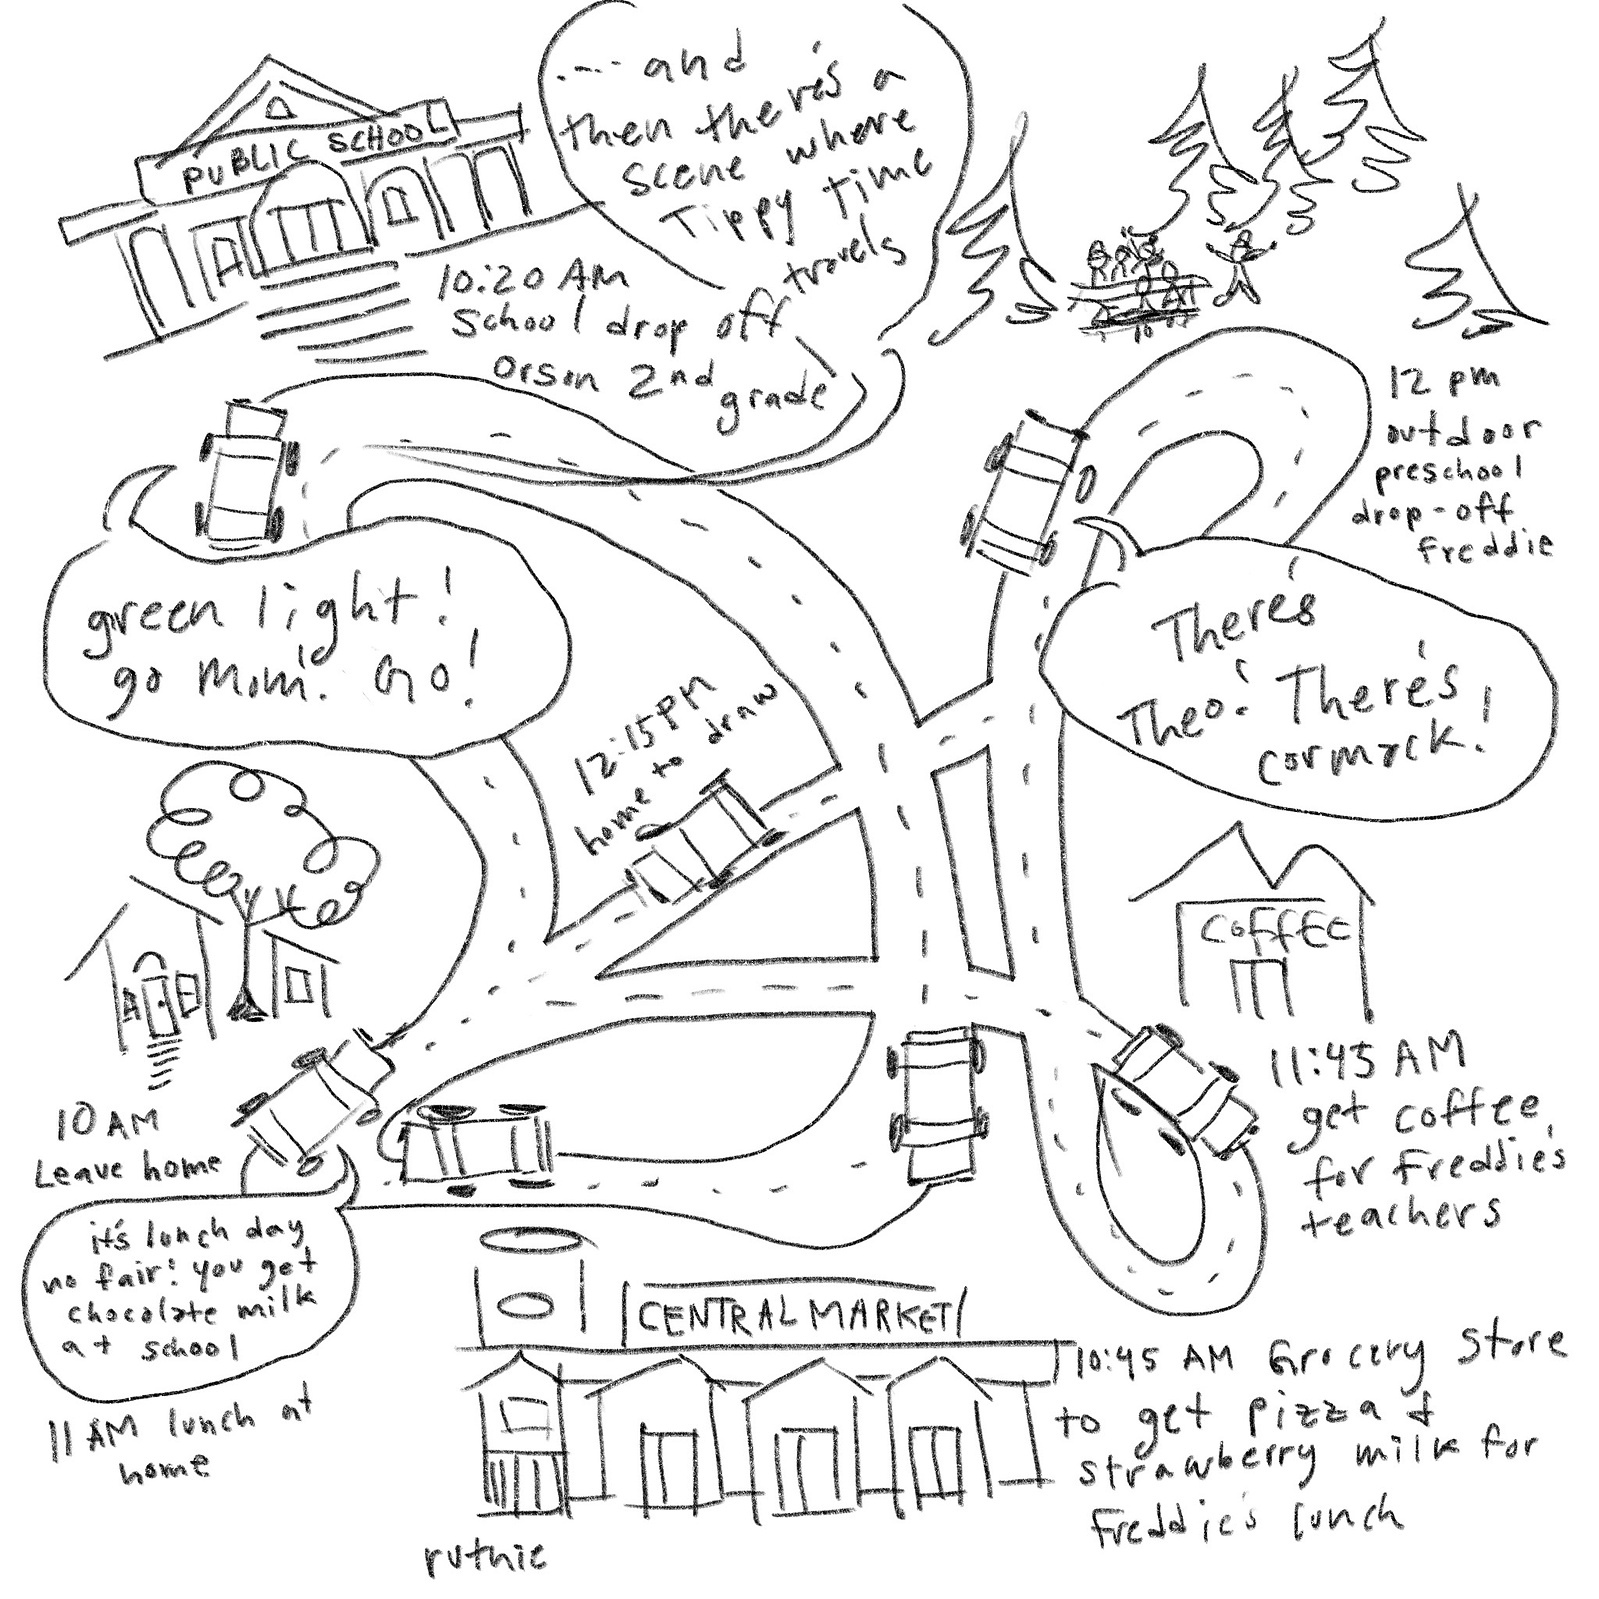 PUBLIC SCHOOL
....and
then there's a
scene where
Tippy time
travels
10:20 AM
School drop off
Orson 2nd
grade
12 pm
outdoor
preschool
drop-off
Freddie
green light!
go Mom! GO!
There's
Theo! There's
cormack!
12:15 PM
home to draw
COFFEE
11:45 AM
get coffee
for Freddie's
teachers
10 AM
Leave home
it's lunch day
no fair! you get
chocolate milk
at school
11 AM lunch at
home
CENTRAL MARKET
10:45 AM Grocery Store
to get pizza &
strawberry milk for
Freddie's lunch
ruthie